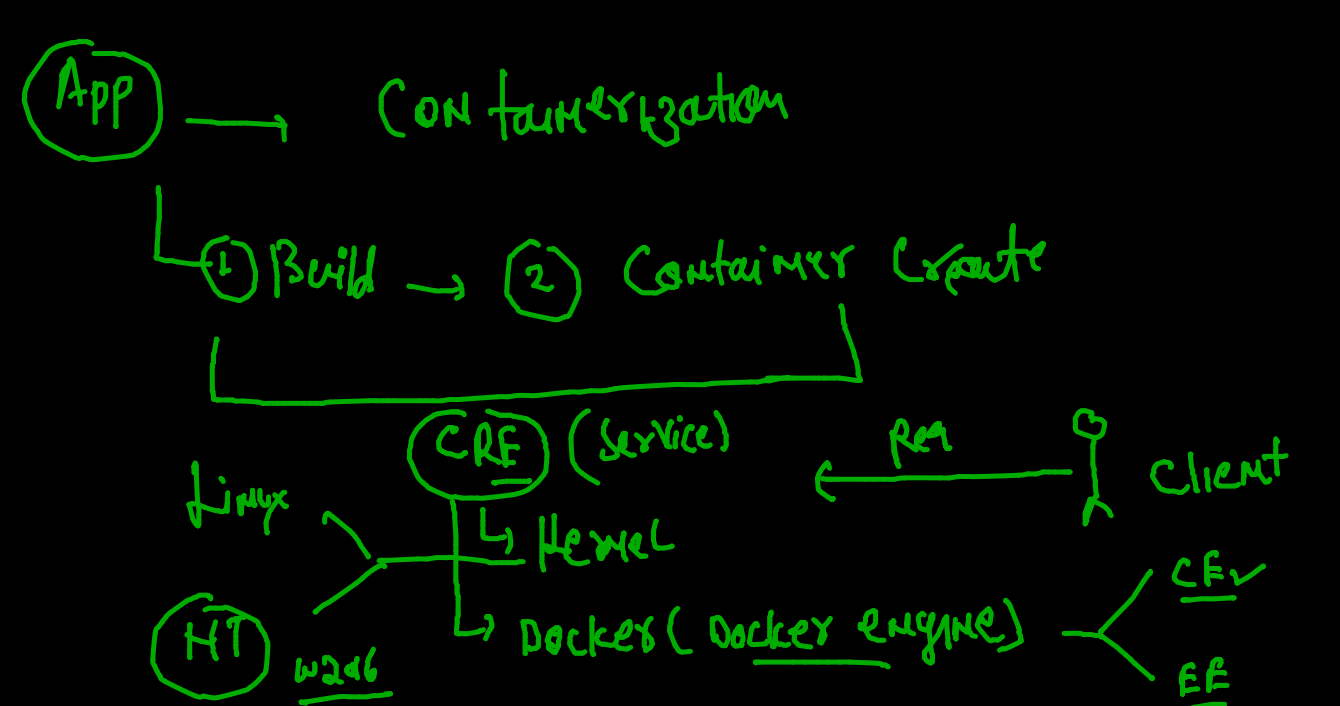 App
Containerization
1 Build 2 Container Create
CRE (Service)
Req
Client
Linux
Kernel
NT
Docker (Docker engine)
CE
EE